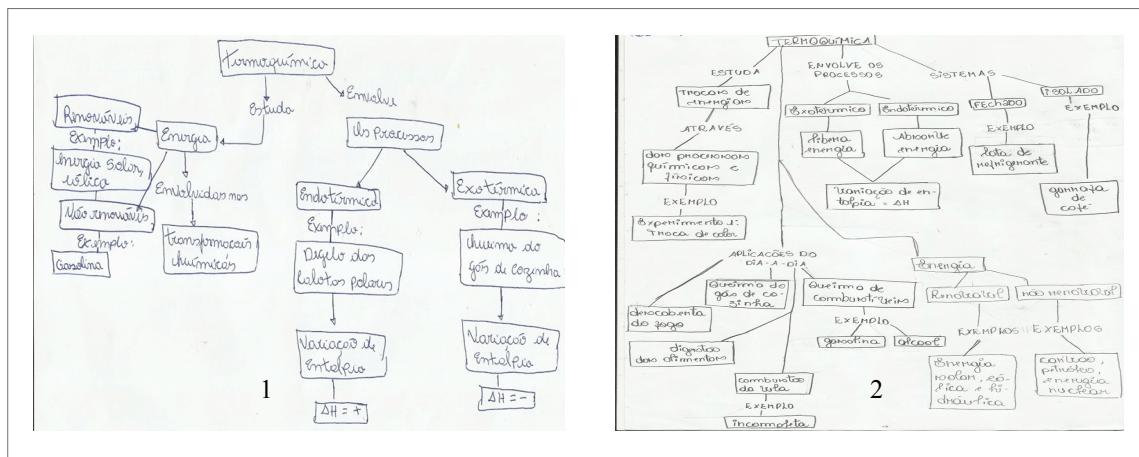 Termoquímica
Estuda
Envolve
Renováveis
Exemplo:
Energia Solar,
eólica
Energia
Não renováveis
Exemplo:
Gasolina
Envolvidas nas
transformações
químicas
Os processos
Endotérmico
Exemplo:
Degelo das
Calotas polares
Variação de
Entalpia
ΔH = +
Exotérmica
Exemplo:
Queima do
gás de cozinha
Variação de
Entalpia
ΔH = -
1
TERMOQUÍMICA
ESTUDA
Trocas de
energias
ATRAVÉS
dos processos
químicos e
físicos
EXEMPLO
Experimento 1:
Troca de calor
ENVOLVE OS
PROCESSOS
Exotérmico
libera
energia
Endotérmico
Absorve
energia
Variação de en-
talpia = ΔH
SISTEMAS
FEchADO
EXEMPLO
lata de
refrigerante
ISOLADO
EXEMPLO
garrafa
de
café
APLICAÇÕES DO
DIA-A-DIA
descoberta
do fogo
Queima do
gás de co-
zinha
digestão
dos alimentos
Queima de
combustíveis
EXEMPLO
gasolina
alcool
combustão
da vela
EXEMPLO
incompleta
Energia
Renovável
EXEMPLOS
Energia
solar, eó-
lica e hi-
dráulica
não renovável
EXEMPLOS
carvão,
petróleo,
energia
nuclear
2